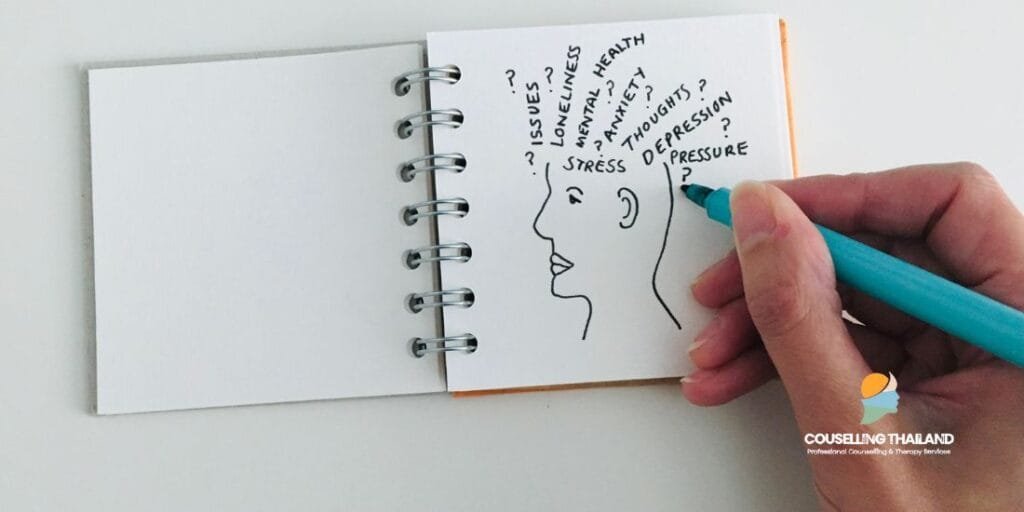 ?
?
?
?
?
?
?
?
?
ISSUES
LONELINESS
MENTAL HEALTH
ANXIETY
THOUGHTS
DEPRESSION
STRESS
PRESSURE
COUSELLING THAILAND
Professional Counselling & Therapy Services